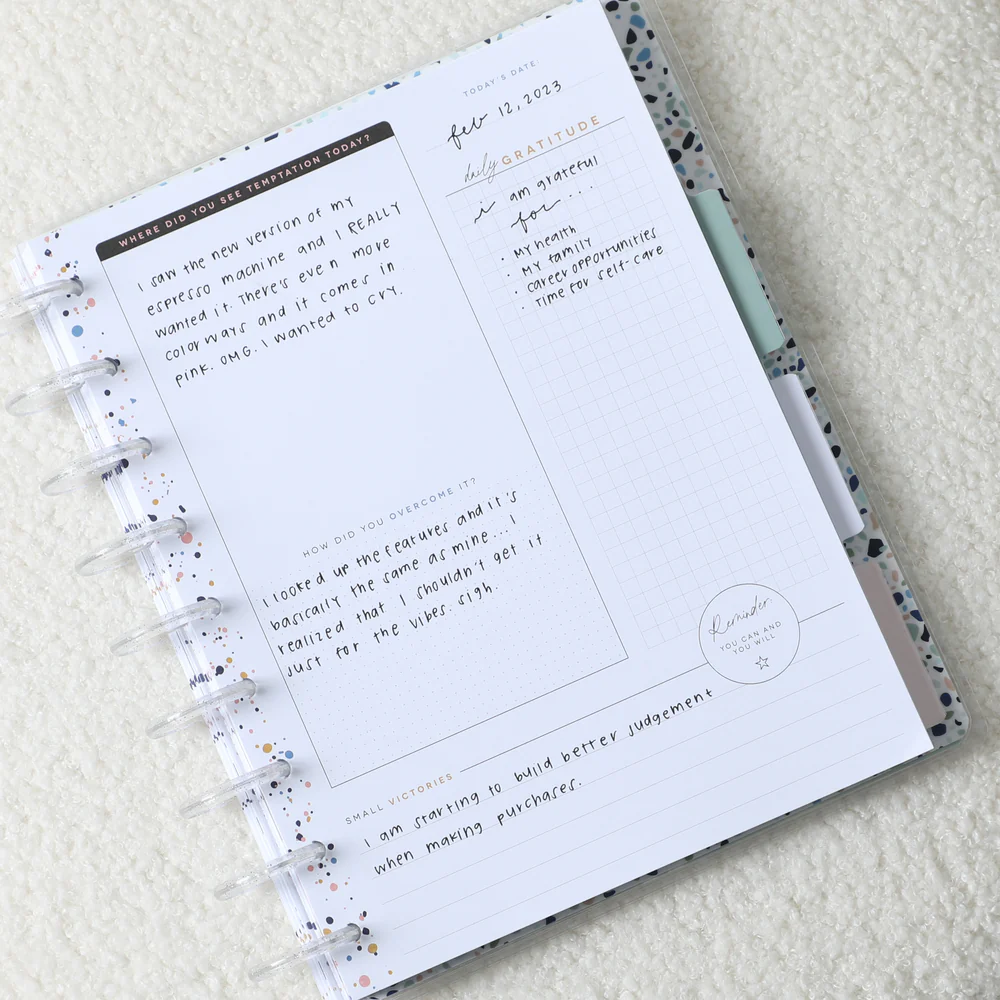 TODAY'S DATE:
feb 12, 2023
WHERE DID YOU SEE TEMPTATION TODAY?
I saw the new version of my
espresso machine and I REALLY
wanted it. There's even more
colorways and it comes in
pink. OMG. I wanted to cry.
HOW DID YOU OVERCOME IT?
I looked up the features and it's
basically the same as mine... I
realized that I shouldn't get it
just for the vibes. sigh.
daily GRATITUDE
i am grateful
for...
• My health
• My family
• career opportunities
• Time for self-care
Reminder:
YOU CAN AND
YOU WILL
SMALL VICTORIES
I am starting to build better judgement
when making purchases.